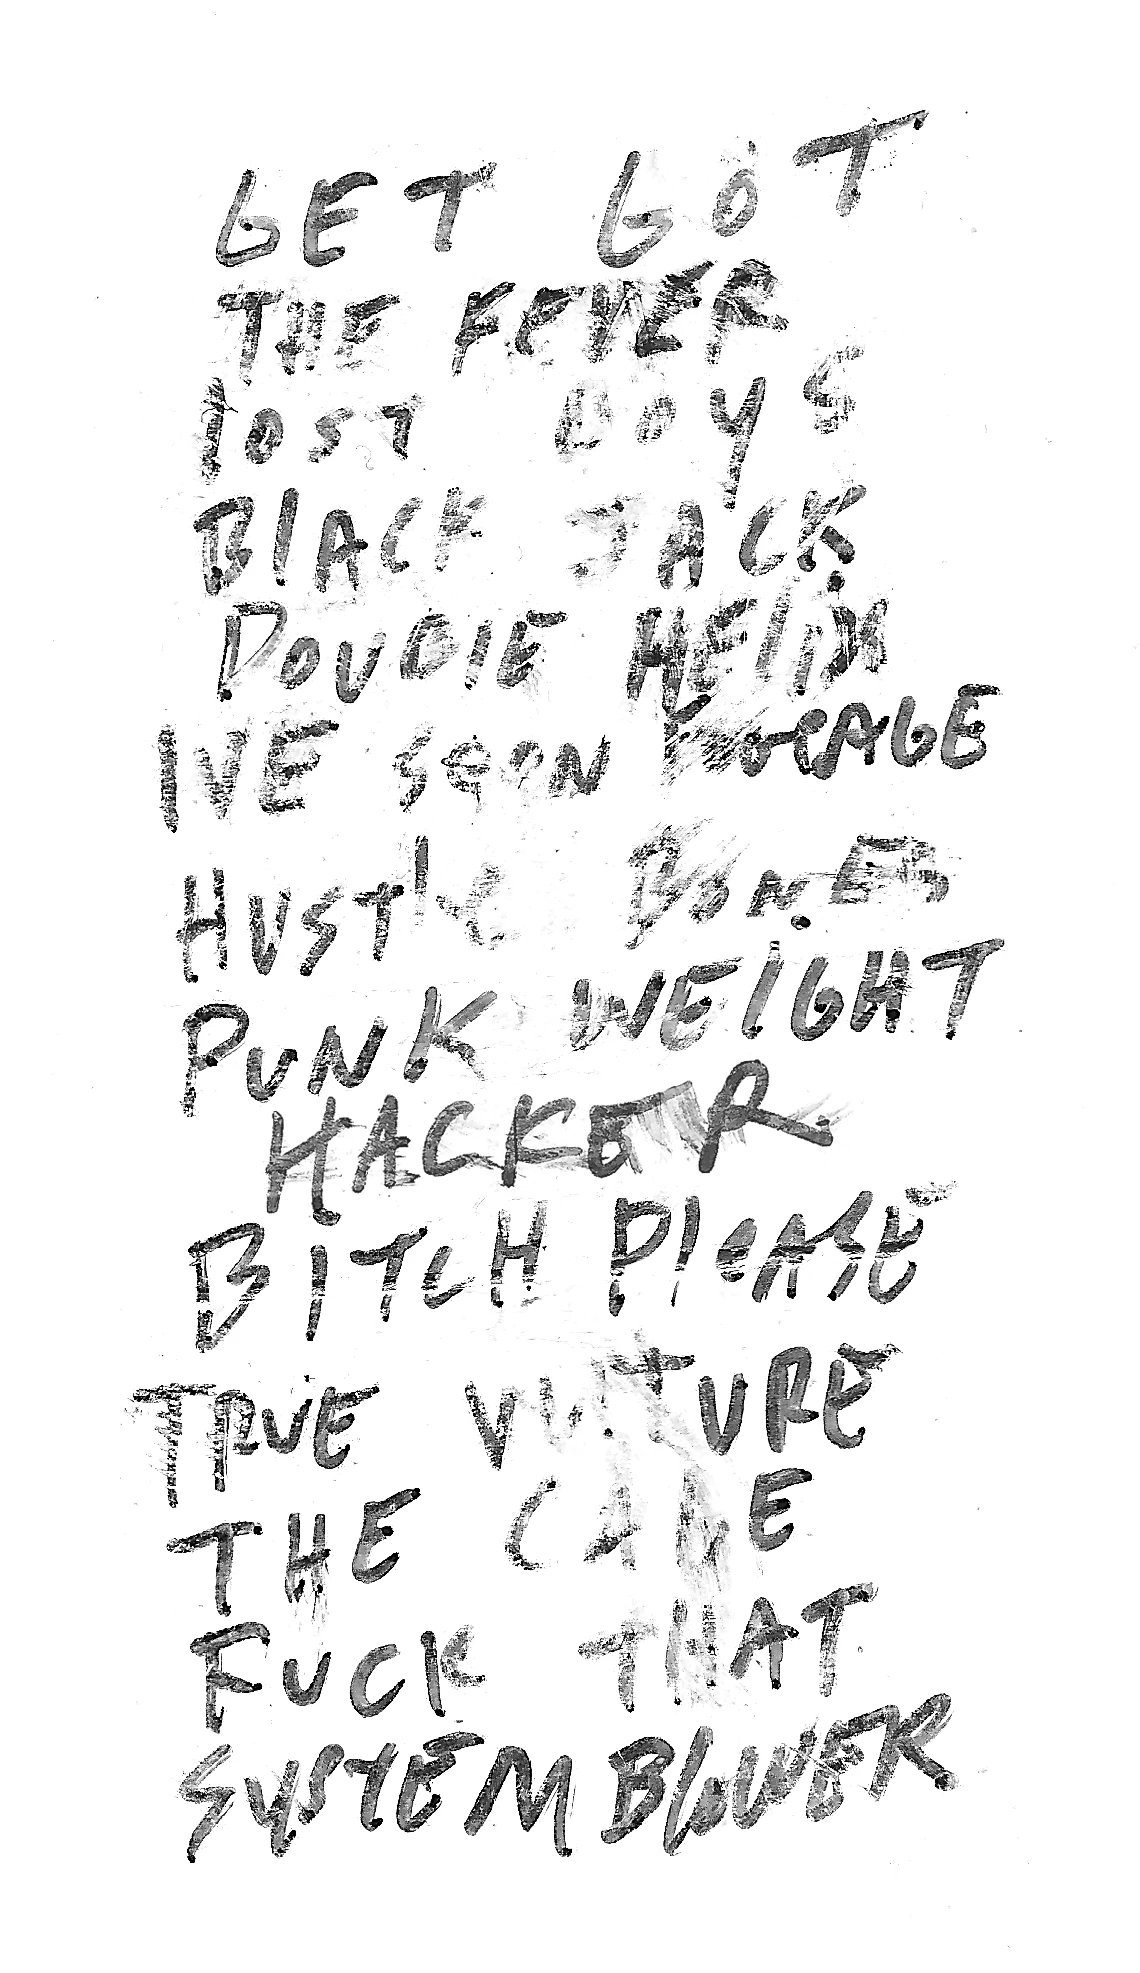 GET GOT
THE FEVER
lOST BOYS
BlACK JACK
DOUBlE HElIX
IVE SEEN FOOTAGE
HUSTlE BONES
PUNK WEIGHT
HACKER
BITCH PlEASE
TRUE VULTURE
THE CAGE
FUCK THAT
SYSTEM BlOWER